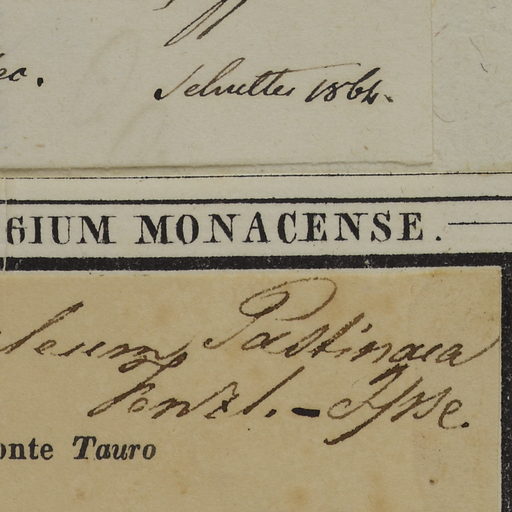 Schultes 1864.
GIUM MONACENSE.
Pastinaca
Fenzl. - Ipse.
onte Tauro